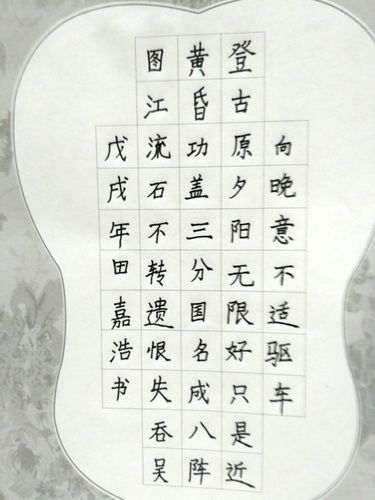 向晚意不适驱车
登古原夕阳无限好只是近
黄昏功盖三分国名成八阵
图江流石不转遗恨失吞吴
戊戌年田嘉浩书